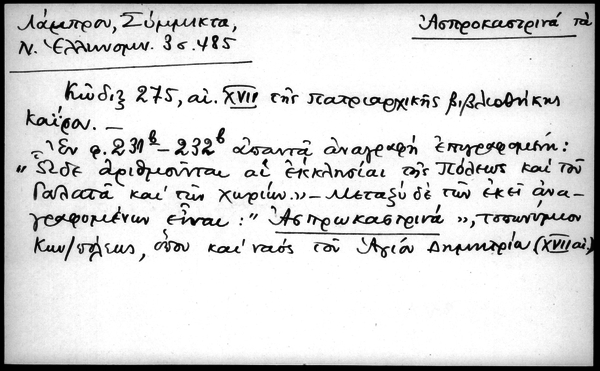 Λάμπρου, Σύμμικτα,
Ν. Ἑλληνομν. 3 σ. 485
Ἀσπροκαστρινά τὰ
Κῶδιξ 275, αἰ. XVII τῆς πατριαρχικῆς βιβλιοθήκης
Καΐρου. —
Ἐν φ. 231β – 232β ἀπαντᾶ ἀναγραφὴ ἐπιγραφομένη:
"Ὧδε ἀριθμοῦνται αἱ ἐκκλησίαι τῆς Πόλεως καὶ τοῦ
Γαλατᾶ καὶ τῶν χωρίων.» — Μεταξὺ δὲ τῶν ἐκεῖ ἀνα-
γραφομένων εἶναι: "Ἀσπρωκαστρινά», τοπωνύμιον
Κων/πόλεως, ὅπου καὶ ναὸς τοῦ Ἁγίου Δημητρίου (XVII αἰ.)